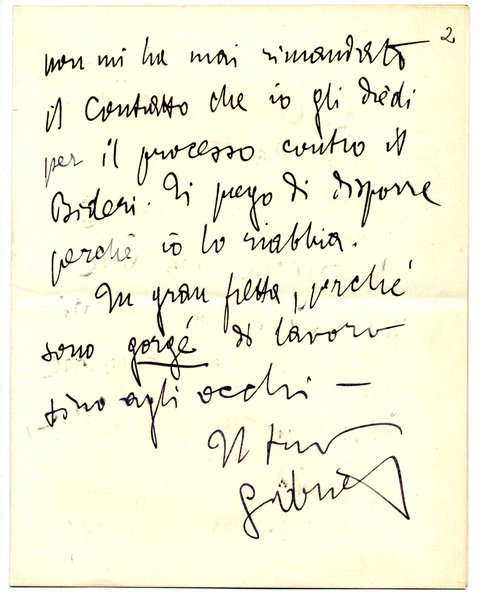 2
non mi ha mai rimandato
il Contratto che io gli diedi
per il processo contro il
Bideri. Ti prego di disporre
perché io lo riabbia.
In gran fretta, perché
sono gorgé di lavoro
sino agli occhi —
Il tuo
Gabriel